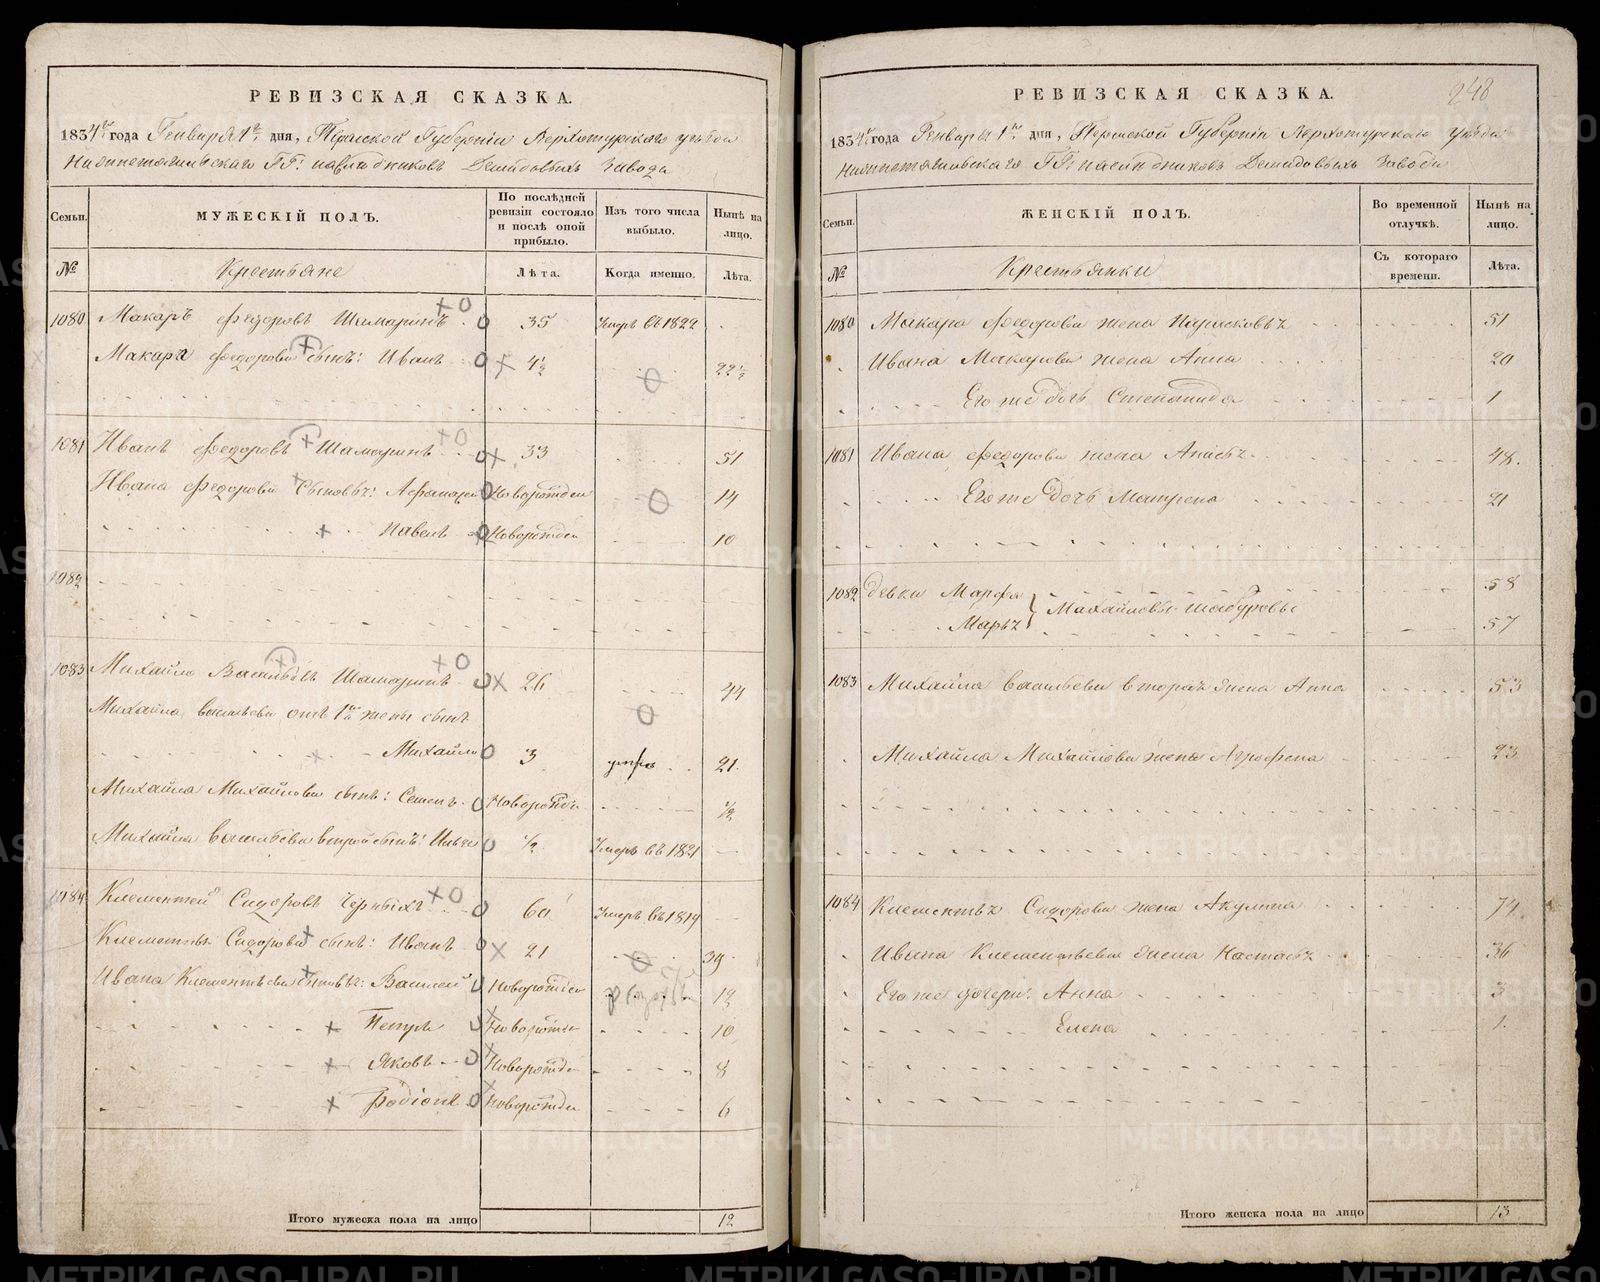 РЕВИЗСКАЯ СКАЗКА.
1834 года Генваря 1 дня, Пермской Губерніи Верхотурскаго уѣзда
Нижнетагильскаго ГГ: наслѣдниковъ Демидовыхъ Завода
Семьи.
МУЖЕСКІЙ ПОЛЪ.
По послѣдней ревизіи состояло и послѣ оной прибыло.
Изъ того числа выбыло.
Нынѣ на лицо.
№
Крестьяне
Лѣта.
Когда именно.
Лѣта.
1080 Макаръ Федоровъ Шамаринъ 35 Умеръ въ 1822
Макара Федорова сынъ: Иванъ 4½ 22½
1081 Иванъ Федоровъ Шамаринъ 33 51
Ивана Федорова Сыновья: Афанасей Новорожден 14
Павелъ Новорожден 10
1082
1083 Михайло Васильевъ Шамаринъ 26 44
Михайла Васильева отъ 1й жены сынъ
Михайло 3 21
Михайла Михайлова сынъ: Семенъ Новорожден ½
Михайла Васильева второй сынъ: Илья ½ Умеръ въ 1821
1084 Клементей Сидоровъ Черныхъ 60 Умеръ въ 1819
Клементья Сидорова сынъ: Иванъ 21 39
Ивана Клементьева сыновья: Василей Новорожден 12
Петръ Новорожден 10
Яковъ Новорожден 8
Родіонъ Новорожден 6
Итого мужеска пола на лицо 12
248
РЕВИЗСКАЯ СКАЗКА.
1834 года Генваря 1 дня, Пермской Губерніи Верхотурскаго уѣзда
Нижнетагильскаго ГГ: наслѣдниковъ Демидовыхъ Завода
Семьи.
ЖЕНСКІЙ ПОЛЪ.
Во временной отлучкѣ.
Нынѣ на лицо.
№
Крестьянки
Съ котораго времени.
Лѣта.
1080 Макара Федорова жена Парасковья 51
Ивана Макарова жена Анна 20
Его же дочь Степанида 1
1081 Ивана Федорова жена 48.
Его же дочь Матрена 21
1082 девки Марфа 58
Михайловы Шабуровы
Марья 57
1083 Михайла Васильева вторая жена Анна 53
Михайла Михайлова жена Агрофена 23
1084 Клементья Сидорова жена Акулина 74
Ивана Клементьева жена Настасья 36
Его же дочери: Анна 3
Елена 1.
Итого женска пола на лицо 13
METRIKI.GASO-URAL.RU